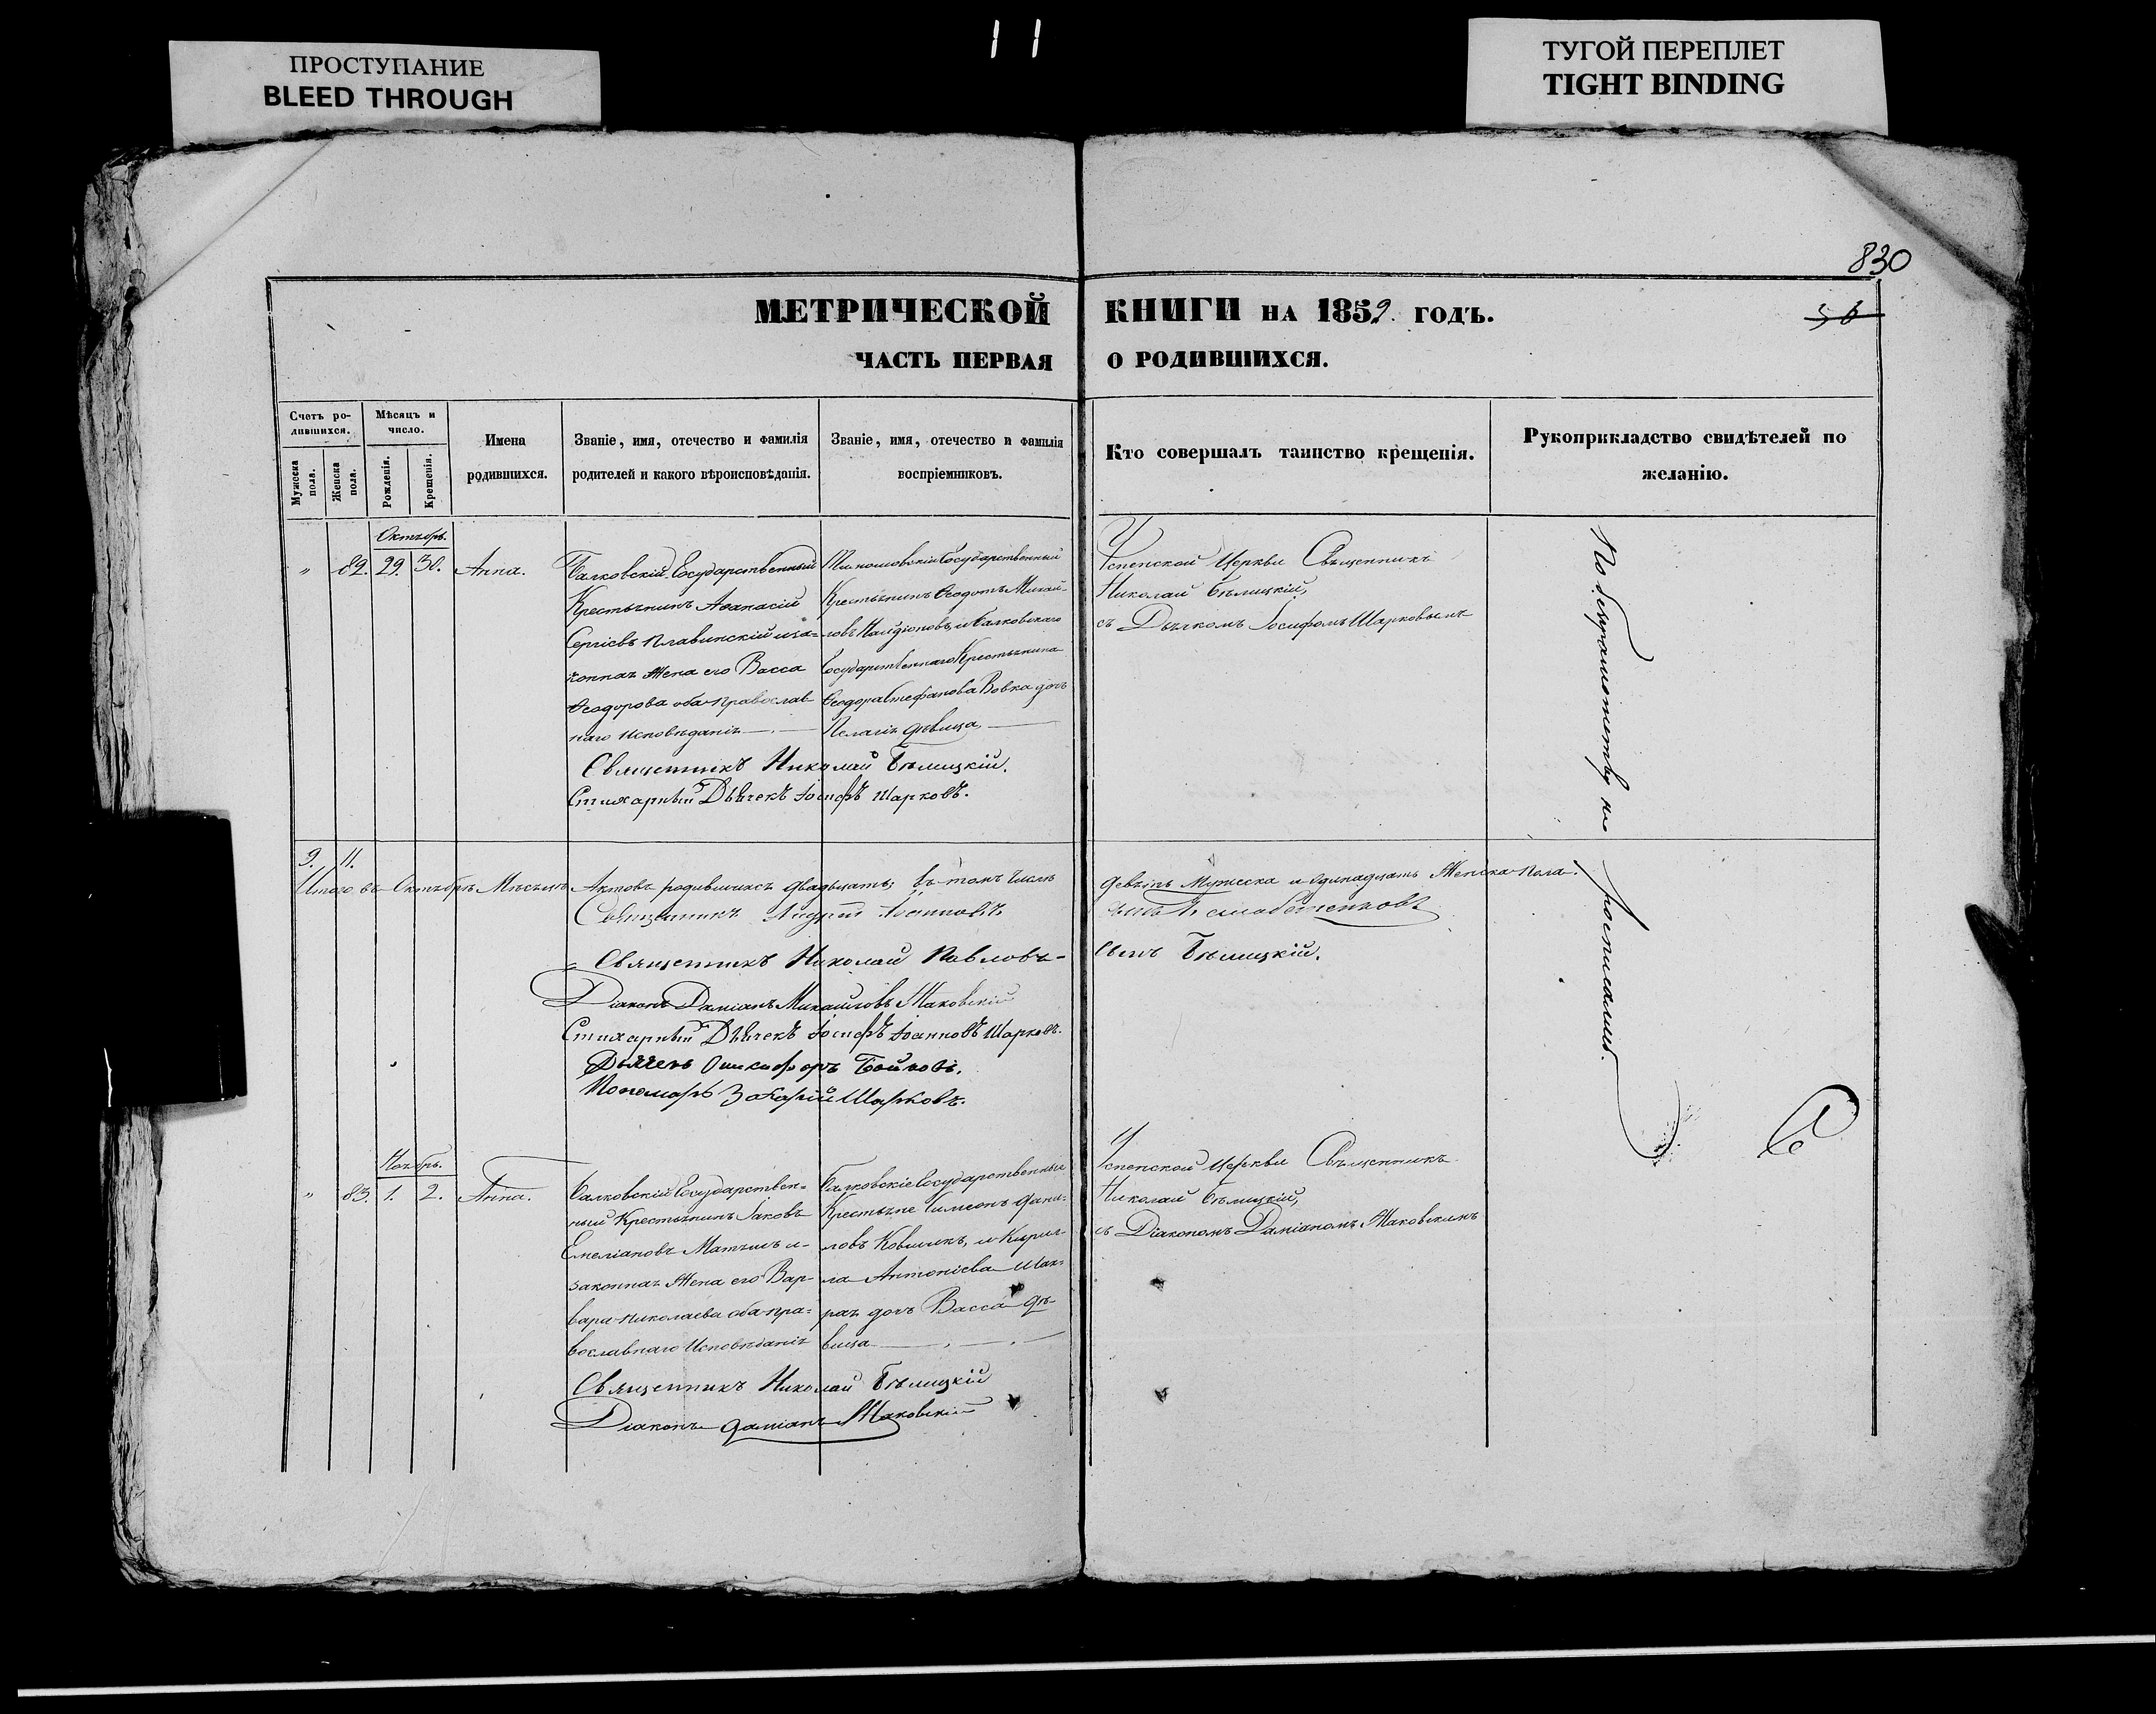 ПРОСТУПАНИЕ
BLEED THROUGH
11
ТУГОЙ ПЕРЕПЛЕТ
TIGHT BINDING
830
56
МЕТРИЧЕСКОЙ КНИГИ НА 1859. ГОДЪ.
ЧАСТЬ ПЕРВАЯ О РОДИВШИХСЯ.
Счетъ ро-
дившихся.
Мужеска
пола.
Женска
пола.
Мѣсяцъ и
число.
Рожденія.
Крещенія.
Имена
родившихся.
Званіе, имя, отечество и фамилія
родителей и какого вѣроисповѣданія.
Званіе, имя, отечество и фамилія
воспріемниковъ.
Кто совершалъ таинство крещенія.
Рукоприкладство свидѣтелей по
желанію.
Октябрь.
" 82. 29. 30. Анна.
Балковскій Государственный
Крестьянинъ Аѳанасій
Сергіевъ Плавинскій и за=
конная Жена его Васса
Ѳеодорова оба Православ-
наго Исповѣданія
Государственный
Крестьянинъ Ѳеодотъ Михай-
ловъ и Балковскаго
Государственнаго Крестьянина
Ѳеодора Стефанова Вовка дочь
Пелагія дѣвица
Успенской Церкви Священникъ
Николай Бѣлицкій,
съ Дьячкомъ Іосифомъ Шарковымъ
Священникъ Николай Бѣлицкій.
Стихарный Дьячекъ Іосифъ Шарковъ.
По безграмотству не росписались.
9. 11.
Итого въ Октябрѣ Мѣсяцѣ Актовъ родившихся двадцать; въ томъ числѣ девять Мужеска и одинадцать Женска Пола.
Священникъ Андрей Іоанновъ
Священникъ Николай Павловъ=
Сынъ Бѣлицкій.
Діаконъ Даміанъ Михайловъ Маковскій
Стихарный Дьячекъ Іосифъ Іоанновъ Шарковъ.
Дьячекъ Бойковъ.
Пономарь Захарій Шарковъ.
Ноябрь.
" 83. 1. 2. Анна.
Балковскій Государствен=
ный Крестьянинъ Іаковъ
Емеліановъ и
законная Жена его Вар-
вара Николаева оба пра=
вославнаго Исповѣданія
Балковскіе Государственные
Крестьяне Симеонъ Дани=
ловъ и Кирил-
ла Антоніева
дочь Васса дѣ-
вица
Успенской Церкви Священникъ
Николай Бѣлицкій,
съ Діакономъ Даміаномъ Маковскимъ
Священникъ Николай Бѣлицкій
Діаконъ Даміанъ Маковскій